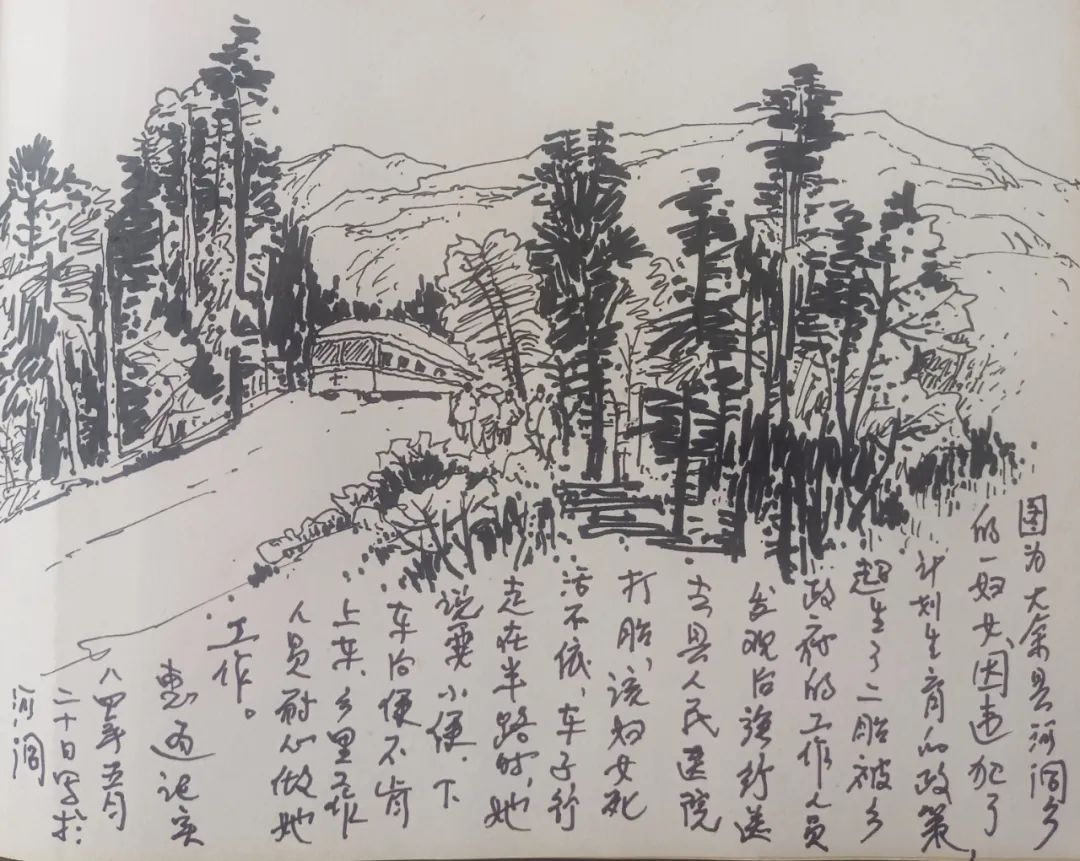 图为大余县河洞乡
的一妇女因违犯了
计划生育的政策，
超生了二胎被乡
政府的工作人员
发现后强行送
去县人民医院
打胎，该妇女死
活不依，车子行
走在半路时，她
说要小便，下
车后便不肯
上车，乡里工作
人员耐心做她
工作。
惠 记实
八四年五月
二十日写于
河洞